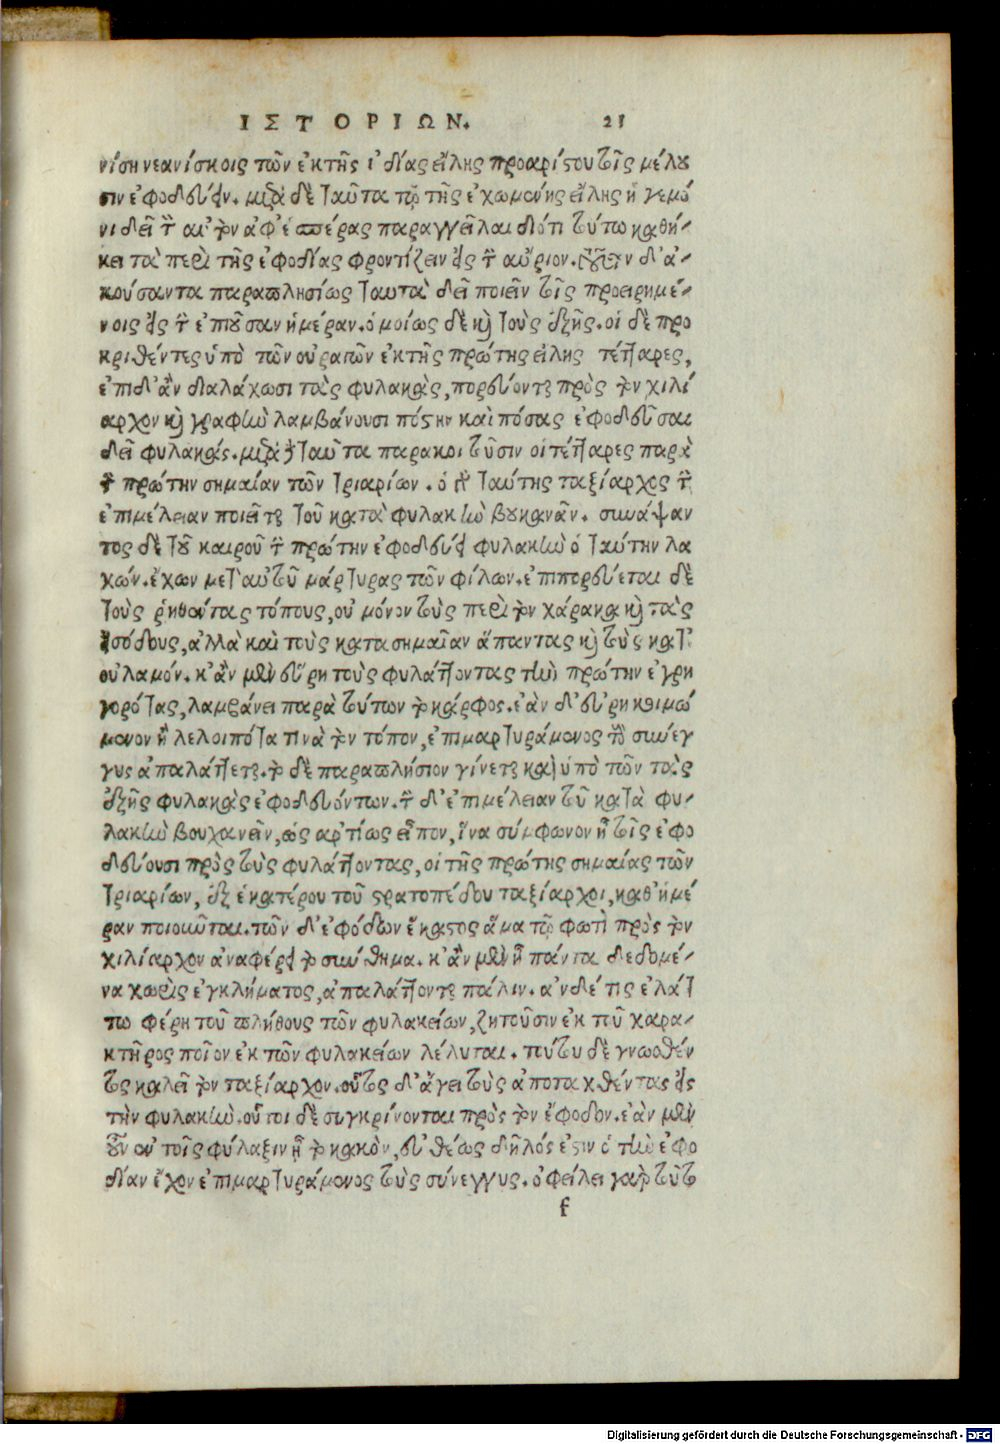 ΙΣΤΟΡΙΩΝ. 21
νίση νεανίσκοις τῶν ἐκ τῆς ἰδίας εἴλης προαρίστου τοῖς μέλου
σιν ἐφοδεύειν. μετὰ δὲ ταῦτα τῷ τῆς ἐχωμένης εἴλης ἡγεμό
νι δεῖ τὴν αὐτὸν ἀφ' ἑσπέρας παραγγεῖλαι διότι τούτῳ καθή-
κει τὰ περὶ τῆς ἐφοδίας φροντίζειν εἰς τὴν αὔριον. τοῦτον δ' ἀ-
κούσαντα παραπλησίως ταυτὰ δεῖ ποιεῖν τοῖς προειρημέ-
νοις εἰς τὴν ἐπιοῦσαν ἡμέραν. ὁμοίως δὲ καὶ τοὺς ἑξῆς. οἱ δὲ προ
κριθέντες ὑπὸ τῶν οὐραγῶν ἐκ τῆς πρώτης εἴλης τέτταρες,
ἐπιδ' ἂν διαλάχωσι τὰς φυλακὰς, πορεύονται πρὸς τὸν χιλί
αρχον καὶ γραφὴν λαμβάνουσι πόστην καὶ πόσας ἐφοδεῦσαι
δεῖ φυλακάς. μετὰ δὲ ταῦτα παρακοιτοῦσιν οἱ τέτταρες παρὰ
τὴν πρώτην σημαίαν τῶν τριαρίων. ὁ γὰρ ταύτης ταξίαρχος τὴν
ἐπιμέλειαν ποιεῖται τοῦ κατὰ φυλακὴν βουκανᾶν. συνάψαν
τος δὲ τοῦ καιροῦ τὴν πρώτην ἐφοδεύει φυλακὴν ὁ ταύτην λα
χών. ἔχων μετ' αὑτοῦ μάρτυρας τῶν φίλων. ἐπιπορεύεται δὲ
τοὺς ῥηθέντας τόπους, οὐ μόνον τοὺς περὶ τὸν χάρακα καὶ τὰς
εἰσόδους, ἀλλὰ καὶ τοὺς κατασημαίαν ἅπαντας καὶ τοὺς κατ'
οὐλαμόν. κἂν μὲν εὕρῃ τοὺς φυλάττοντας τὴν πρώτην ἐγρη
γορότας, λαμβάνει παρὰ τούτων τὸ κάρφος. ἐὰν δ' εὕρῃ κοιμώ
μενον ἢ λελοιπότα τινὰ τὸν τόπον, ἐπιμαρτυράμενος τοὺς σύνεγ
γυς ἀπαλάττεται. τὸ δὲ παραπλήσιον γίνεται καὶ ὑπὸ τῶν τὰς
ἑξῆς φυλακὰς ἐφοδευόντων. τὴν δ' ἐπιμέλειαν τοῦ κατὰ φυ-
λακὴν βουχανεῖν, ὡς ἀρτίως εἶπον, ἵνα σύμφωνον ᾖ τοῖς ἐφο
δεύουσι πρὸς τοὺς φυλάττοντας, οἱ τῆς πρώτης σημαίας τῶν
τριαρίων, ἐξ ἑκατέρου τοῦ στρατοπέδου ταξίαρχοι, καθ' ἡμέ
ραν ποιοῦνται. τῶν δ' ἐφόδων ἕκαστος ἅμα τῷ φωτὶ πρὸς τὸν
χιλίαρχον ἀναφέρει τὸ σύνθημα. κἂν μὲν ᾖ πάντα δεδομέ-
να χωρὶς ἐγκλήματος, ἀπαλάττονται πάλιν. ἂν δέ τις ἐλάτ
τω φέρῃ τοῦ πλήθους τῶν φυλακείων, ζητοῦσιν ἐκ τοῦ χαρα-
κτῆρος ποῖον ἐκ τῶν φυλακείων λέλυται. τούτου δὲ γνωσθέν
τος καλεῖ τὸν ταξίαρχον. οὗτος δ' ἄγει τοὺς ἀποταχθέντας εἰς
τὴν φυλακὴν. οὗτοι δὲ συγκρίνονται πρὸς τὸν ἔφοδον. ἐὰν μὲν
οὖν ἐν τοῖς φύλαξιν ᾖ τὸ κακὸν, εὐθέως δῆλός ἐστιν ὁ τὴν ἐφο
δίαν ἔχων ἐπιμαρτυράμενος τοὺς σύνεγγυς. ὀφείλει γὰρ τοῦτο
f
Digitalisierung gefördert durch die Deutsche Forschungsgemeinschaft - DFG